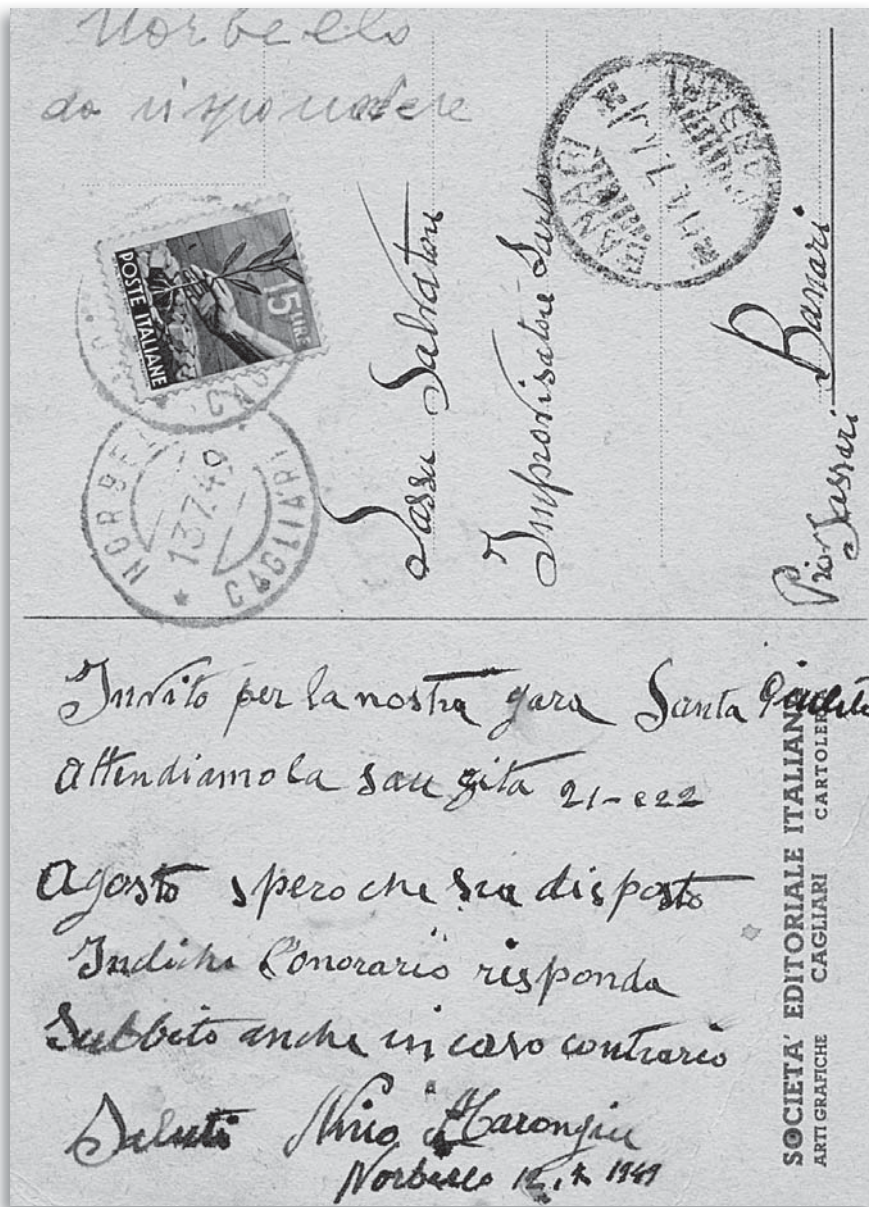 Norbello
da rispondere
POSTE ITALIANE
15 LIRE
NORBELLO
CAGLIARI
13.7.49
BANARI
Sassu Salvatore
Improvisatore Sardo
Banari
Prov Sassari
Invito per la nostra gara Santa
Attendiamo la sau gita 21-e22
Agosto spero che sia disposto
Indichi l'onorario risponda
Subbito anche in caso contrario
Saluti Nino Marongiu
Norbello 12.7.1949
SOCIETA' EDITORIALE ITALIANA
ARTI GRAFICHE CAGLIARI